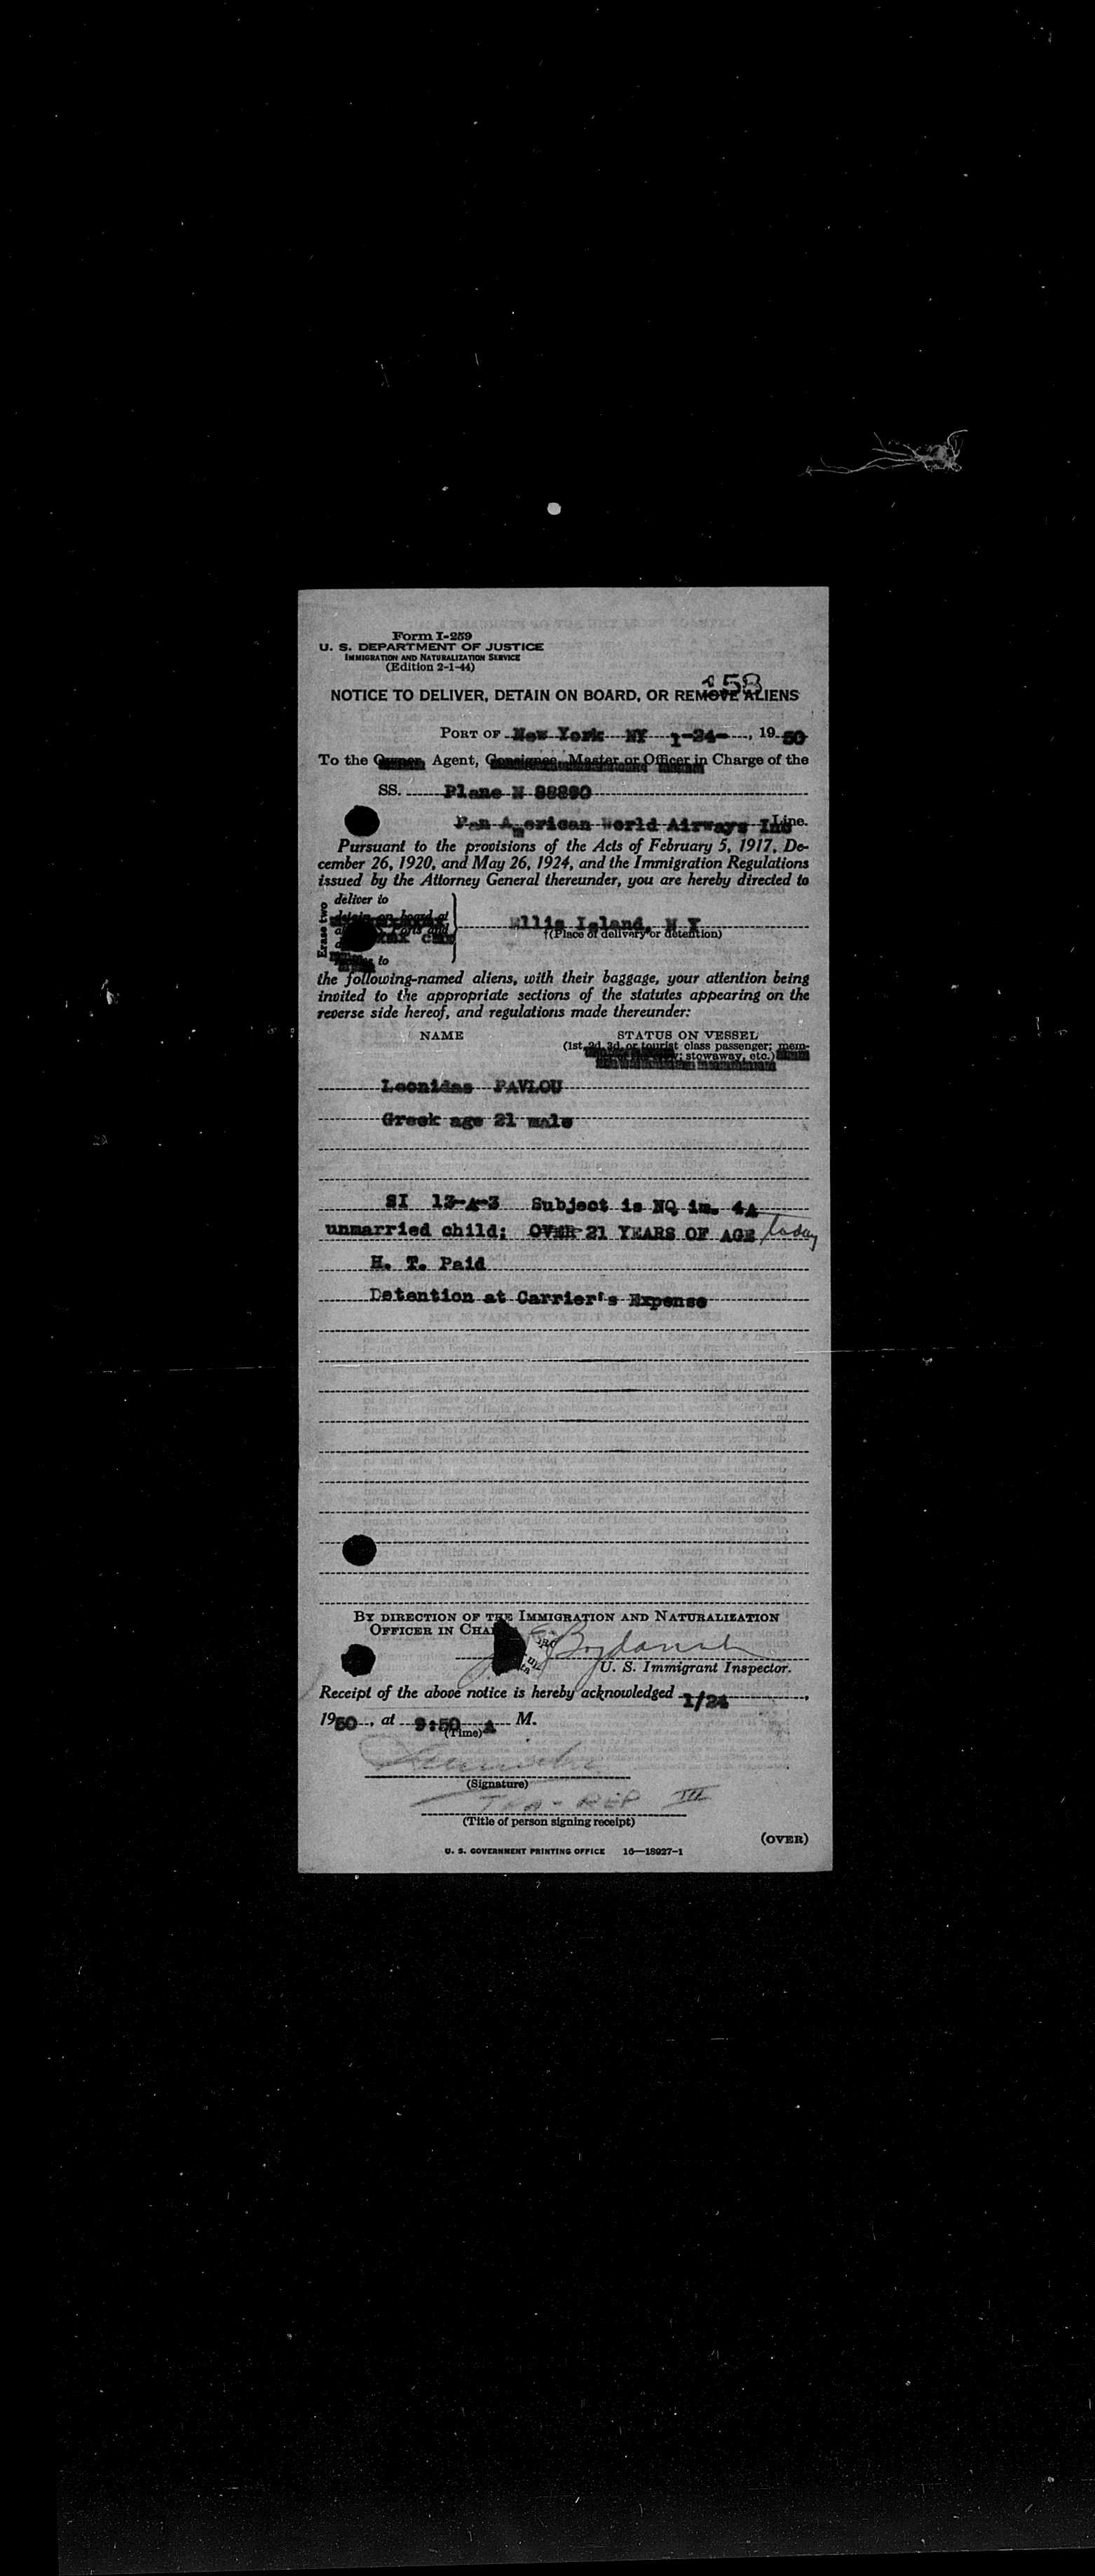 Form I-259
U. S. DEPARTMENT OF JUSTICE
IMMIGRATION AND NATURALIZATION SERVICE
(Edition 2-1-44)
158
NOTICE TO DELIVER, DETAIN ON BOARD, OR REMOVE ALIENS
PORT OF New York NY 1-24-, 1950
To the Owner, Agent, Consignee, Master or Officer in Charge of the
SS. Plane N 88890
Pan American World Airways Inc Line.
Pursuant to the provisions of the Acts of February 5, 1917, De-
cember 26, 1920, and May 26, 1924, and the Immigration Regulations
issued by the Attorney General thereunder, you are hereby directed to
Erase two
deliver to
detain on board at
Ellis Island, N Y
†(Place of delivery or detention)
to
the following-named aliens, with their baggage, your attention being
invited to the appropriate sections of the statutes appearing on the
reverse side hereof, and regulations made thereunder:
NAME STATUS ON VESSEL
(1st, 2d, 3d, or tourist class passenger; mem-
; stowaway, etc.)
Leonidas PAVLOU
Greek age 21 male
SI 13-A-3 Subject is NQ im. 4A
unmarried child; OVER 21 YEARS OF AGE today
H. T. Paid
Detention at Carrier's Expense
BY DIRECTION OF THE IMMIGRATION AND NATURALIZATION
OFFICER IN
U. S. Immigrant Inspector.
Receipt of the above notice is hereby acknowledged 1/24,
1950, at 9:50 A M.
(Time)
(Signature)
REP III
(Title of person signing receipt)
(OVER)
U. S. GOVERNMENT PRINTING OFFICE 16—18927-1